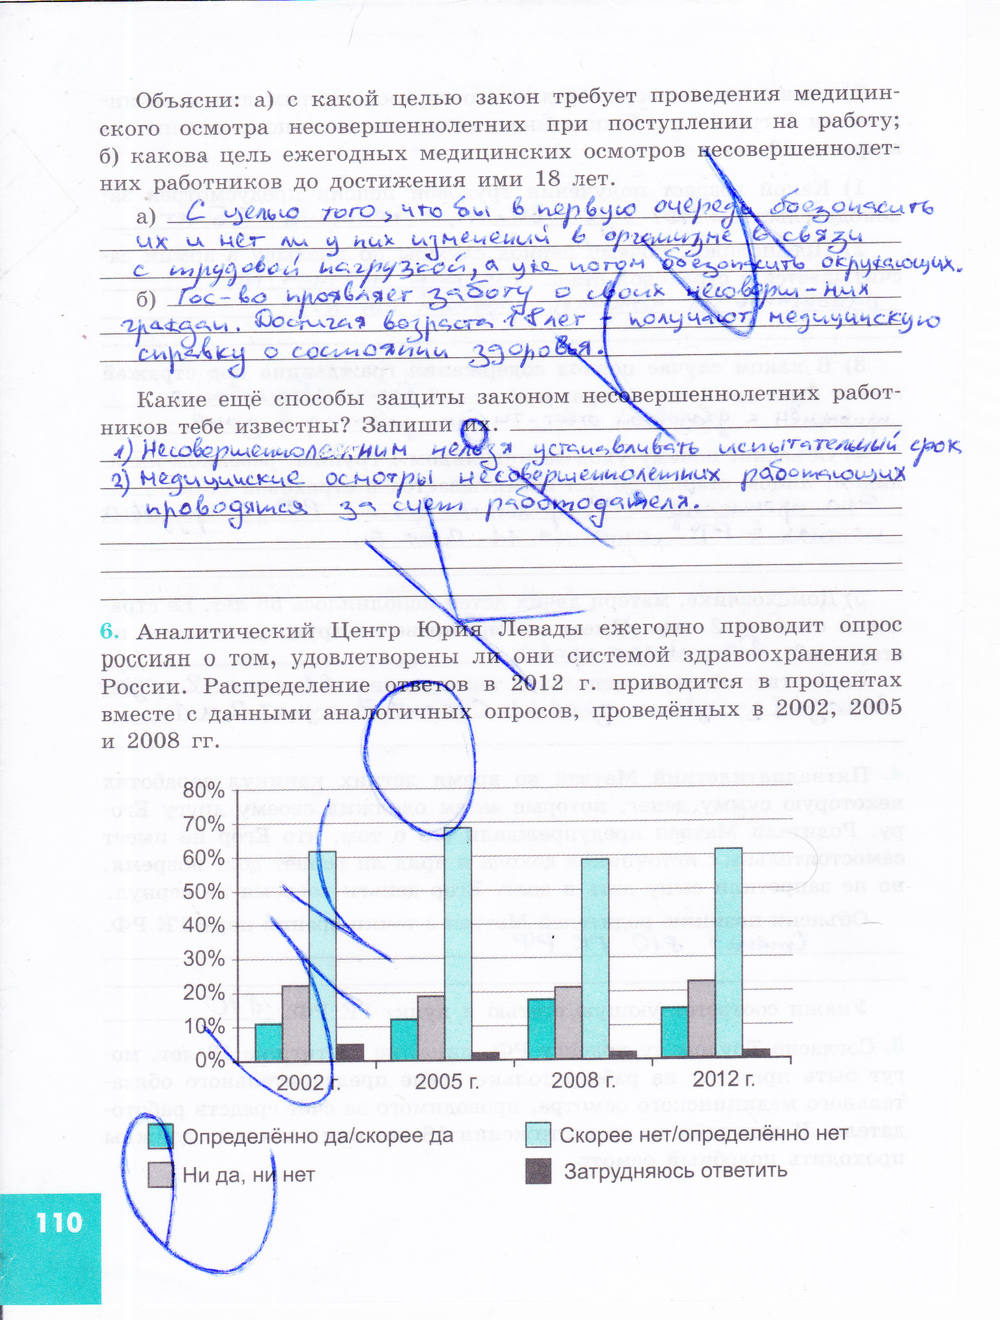 Объясни: а) с какой целью закон требует проведения медицин-
ского осмотра несовершеннолетних при поступлении на работу;
б) какова цель ежегодных медицинских осмотров несовершеннолет-
них работников до достижения ими 18 лет.
а) С целью того, что бы в первую очередь обезопасить
их и нет ли у них изменений в организме в связи
с трудовой нагрузкой, а уже потом обезопасить окружающих.
б) Гос-во проявляет заботу о своих несоверш-них
граждан. Достигая возраста 18 лет - получают медицинскую
справку о состоянии здоровья.
Какие ещё способы защиты законом несовершеннолетних работ-
ников тебе известны? Запиши их.
1) Несовершеннолетним нельзя устанавливать испытательный срок
2) Медицинские осмотры несовершеннолетних работающих
проводятся за счет работодателя.
6. Аналитический Центр Юрия Левады ежегодно проводит опрос
россиян о том, удовлетворены ли они системой здравоохранения в
России. Распределение ответов в 2012 г. приводится в процентах
вместе с данными аналогичных опросов, проведённых в 2002, 2005
и 2008 гг.
80%
70%
60%
50%
40%
30%
20%
10%
0%
2002 г. 2005 г. 2008 г. 2012 г.
Определённо да/скорее да Скорее нет/определённо нет
Ни да, ни нет Затрудняюсь ответить
110